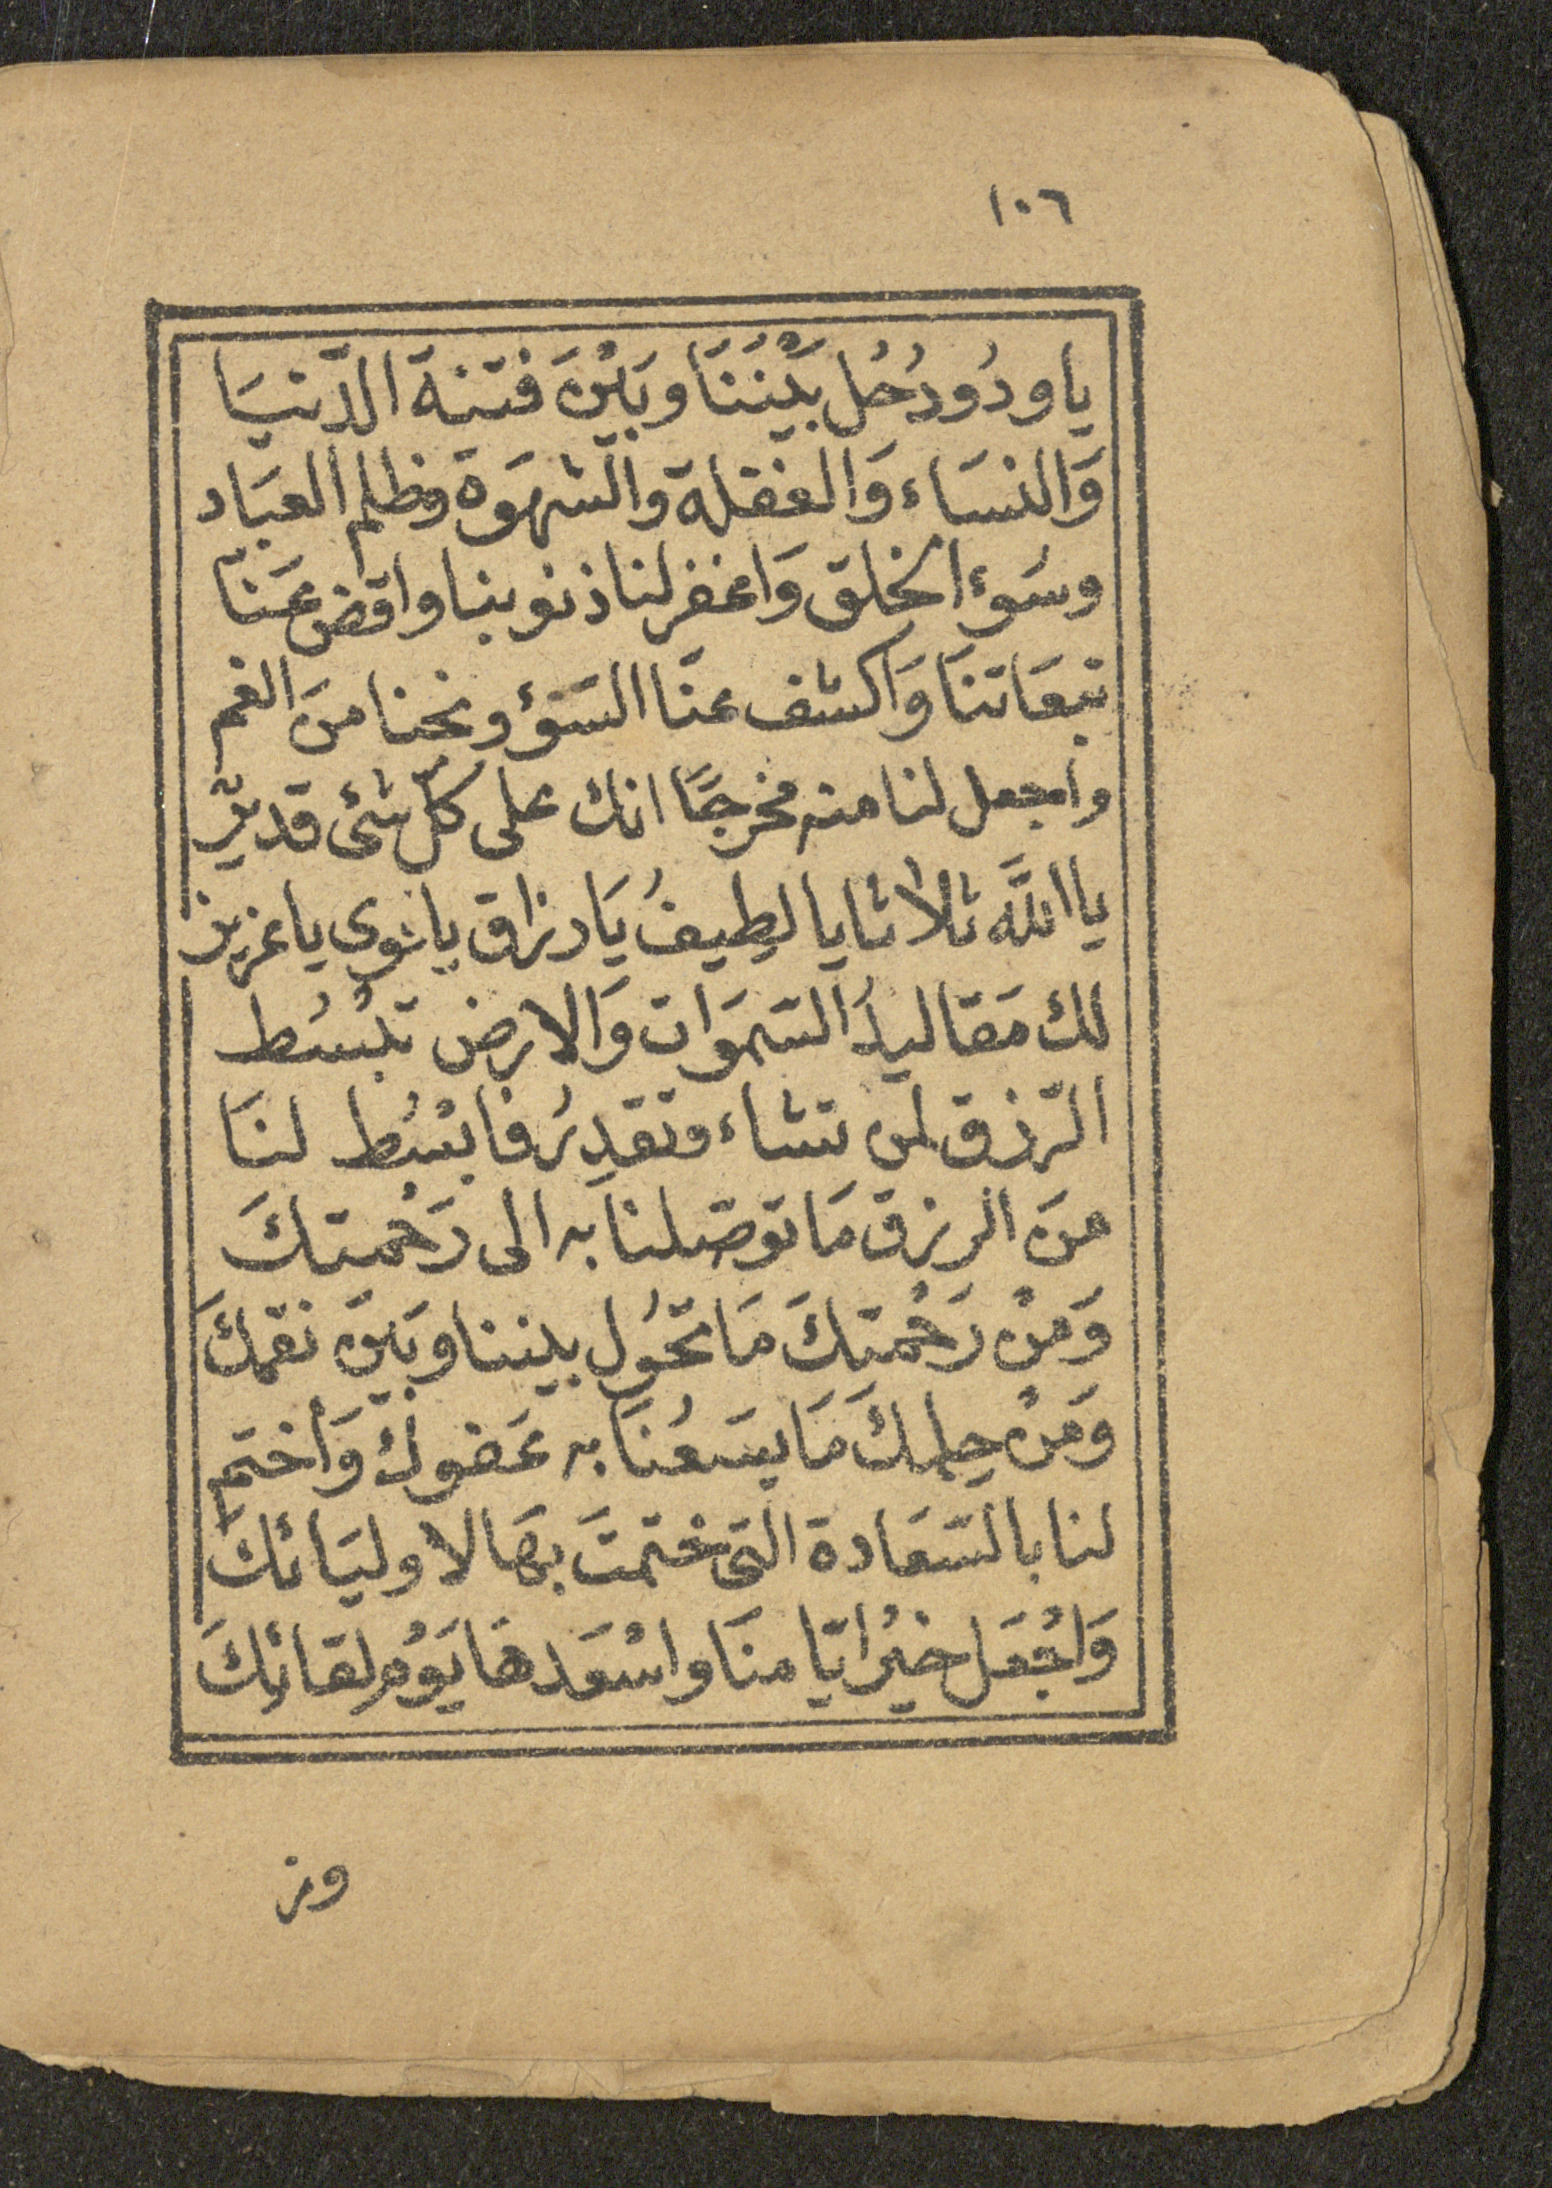 ١٠٦
يا ودُودُ حُل بَيْننَا وبَيْنَ فتنة الدّنيَا
وَالنسَاء وَالغفلة والشهوَة وظلم العبَاد
وسُوء الخلق وَاغفر لنا ذنوبنا واقض عَنّا
تبعَاتنَا وَاكشف عنّا السّوٓء ونجنا منَ الغم
واجعل لنا منه مخرجًا انك على كلّ شئ قديرٌ
يا اللَّه ثلاثا يا لطِيفُ يَا رزاق يا قوى يا عزيز
لك مَقاليدُ السّموَات وَالارض تبسُط
الرّزق لمن تشاء وتقدِرُ فابْسُط لنَا
منَ الرزق مَا توصّلنا به الى رَحْمتكَ
وَمنْ رَحْمتِكَ مَا تحُول بيننا وبَيْنَ نقمكَ
وَمنْ حِلمكَ مَا يسَعُنَا به عَفوك وَاختم
لنا بالسّعَادة التى ختمتَ بهَا لاوليَائكَ
وَاجْعَل خيْرُ ايّامنَا واسْعَدهَا يَوْم لقائِكَ
وز